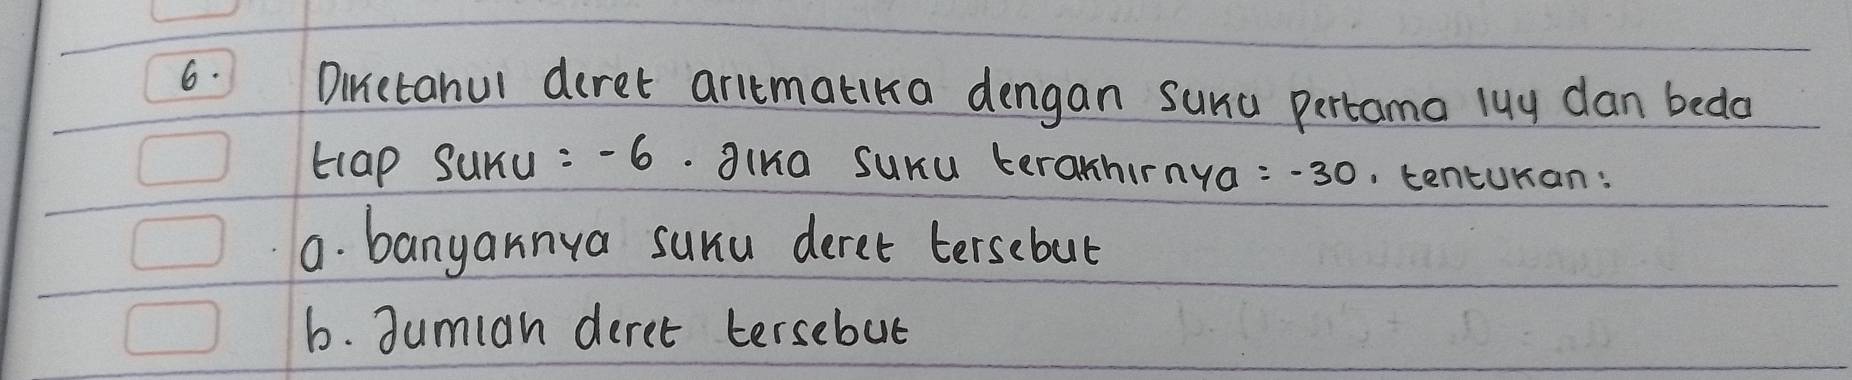 6. Diketahui deret aritmatika dengan suku pertama 144 dan beda
tiap suku = -6. Jika suku terakhirnya = -30, tentukan:
a. banyaknya suku deret tersebut
b. Jumlah deret tersebut